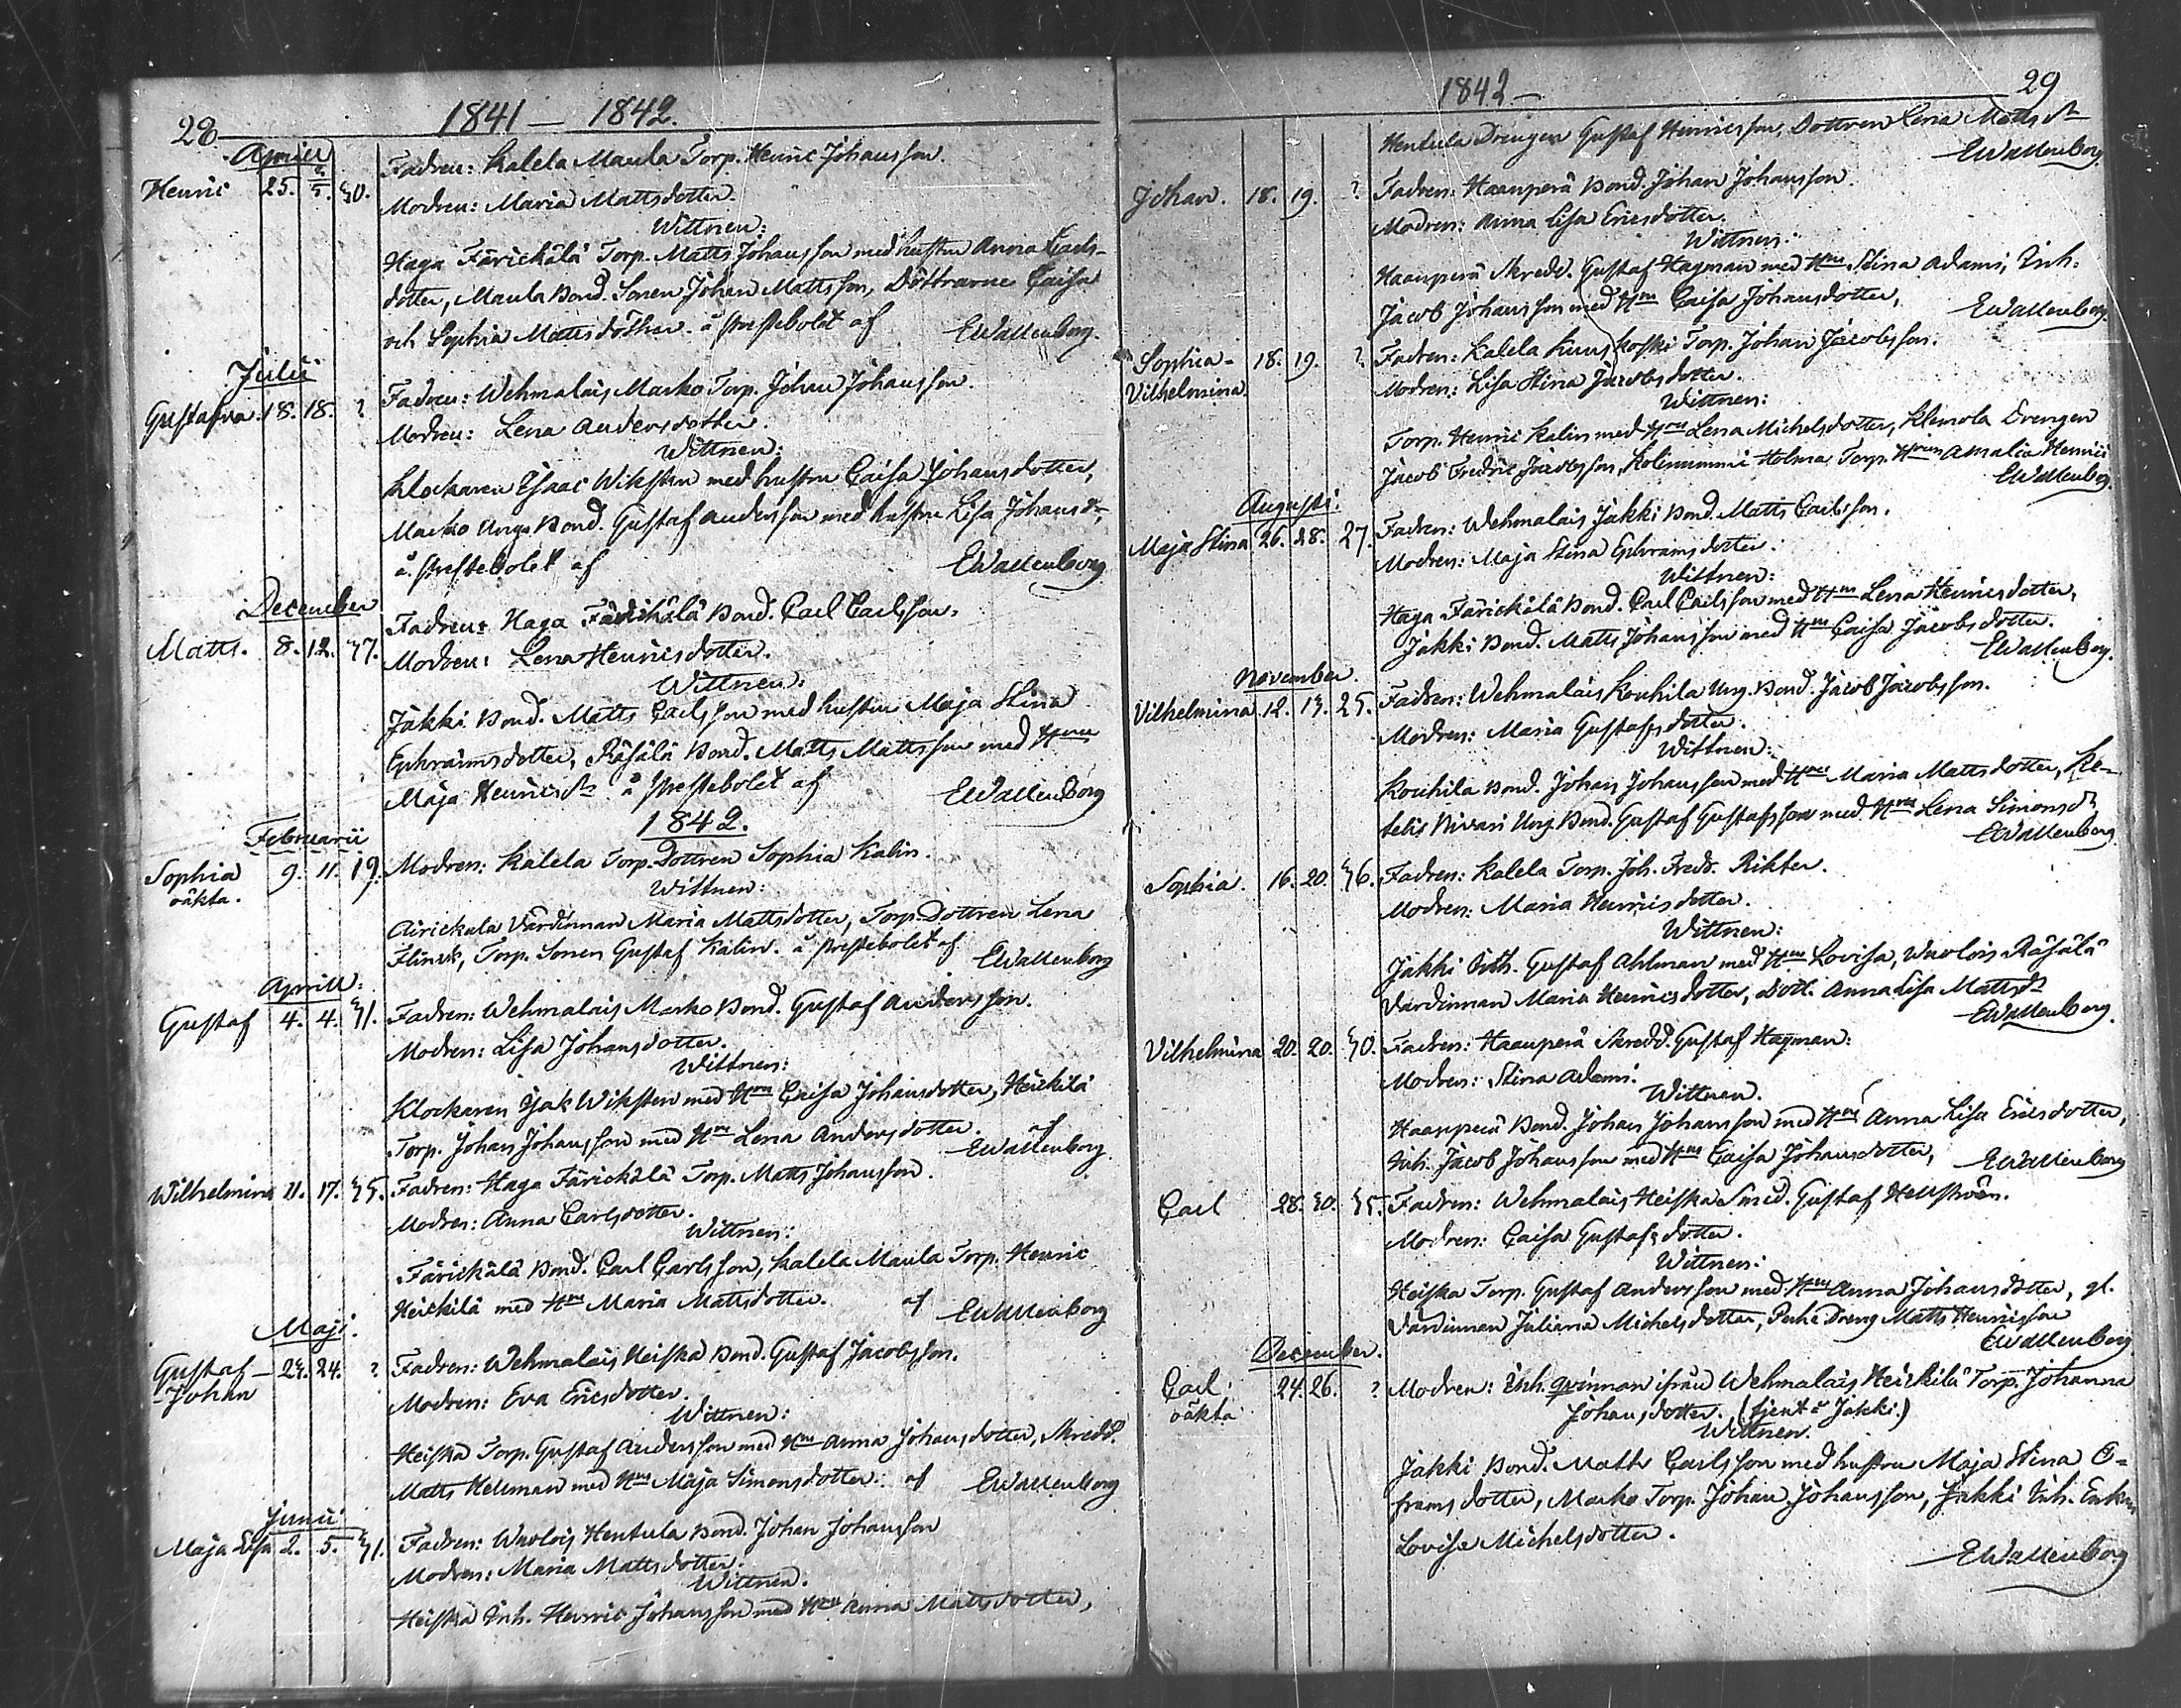 28
1841 — 1842.
Aprill
Henric 25. 2/5. 30. Fadren: Kalela Maula Torp. Henric Johansson.
Modren: Maria Mattsdotter.
Wittnen:
Haga Färickälä Torp. Matts Johansson med hustru Anna Carls-
dotter, Maula Bond. Sonen Johan Mattsson, Döttrarne Caisa
och Sophia Mattsdöttrar. å prestebolet af EWallenborg.
Julii
Gustafva. 18. 18. ? Fadren: Wehmalais Marko Torp. Johan Johansson.
Modren: Lena Andersdotter.
Wittnen:
Klockaren Isaac Wiksten med hustru Caisa Johansdotter,
Marko Unge Bond. Gustaf Andersson med hustru Lisa Johansdr,
å prestebolet af EWallenborg
December
Matts. 8. 12. 37. Fadren: Haga Färickälä Bond. Carl Carlsson.
Modren: Lena Henricsdotter.
Wittnen:
Jakki Bond. Matts Carlsson med hustru Maja Stina
Ephraimsdotter, Räsälä Bond. Matts Mattsson med Hru
Maja Henricsdr å prestebolet af EWallenborg
1842.
Februarii
Sophia 9. 11. 19. Modren: Kalela Torp. Dottren Sophia Kalin.
oäkta.
Wittnen:
Airickala Värdinnan Maria Mattsdotter, Torp. Dottren Lena
Flinck, Torp. Sonen Gustaf Kalin. å prestebolet af EWallenborg
Aprill:
Gustaf 4. 4. 31. Fadren: Wehmalais Marko Bond. Gustaf Andersson.
Modren: Lisa Johansdotter.
Wittnen:
Klockaren Isak Wiksten med Hru Caisa Johansdotter, Heickilä
Torp. Johan Johansson med Hru Lena Andersdotter. af EWallenborg
Wilhelmina 11. 17. 35. Fadren: Haga Färickälä Torp. Matts Johansson.
Modren: Anna Carlsdotter.
Wittnen:
Färickälä Bond. Carl Carlsson, Kalela Maula Torp. Henric
Heickilä med Hru Maria Mattsdotter. af EWallenborg
Maji.
Gustaf — 23. 24. ? Fadren: Wehmalais Heiska Bond. Gustaf Jacobsson.
Johan
Modren: Eva Ericsdotter.
Wittnen:
Heiska Torp. Gustaf Andersson med Hru Anna Johansdotter, Skredd.
Matts Hellman med Hru Maja Simonsdotter. af EWallenborg
Junii
Maja Lisa 2. 5. 31. Fadren: Warlois Hentula Bond. Johan Johansson
Modren: Maria Mattsdotter.
Wittnen.
Heiska Inh. Henric Johansson med Hru Anna Mattsdotter,
1842 —
29
Hentula Drengen Gustaf Henricsson, Dottren Lena Mattsdr
EWallenborg
Johan. 18. 19. ? Fadren: Haanperä Bond. Johan Johansson.
Modren: Anna Lisa Ericsdotter.
Wittnen:
Haanperä Skredd. Gustaf Hagman med Hru Stina Adami, Inh.
Jacob Johansson med Hru Caisa Johansdotter, EWallenborg.
Sophia- 18. 19. ? Fadren: Kalela Kuuskoski Torp. Johan Jacobsson.
Vilhelmina.
Modren: Lisa Stina Jacobsdotter.
Wittnen:
Torp. Henric Kalin med Hru Lena Michelsdotter, Klemola Drengen
Jacob Fredric Jacobsson, Kolinummi Holma Torp. Hrun Amalia Henrici
EWallenborg.
Augusti:
Maja Stina 26. 28. 27. Fadren: Wehmalais Jakki Bond. Matts Carlsson.
Modren: Maja Stina Ephraimsdotter.
Wittnen:
Haga Färickälä Bond. Carl Carlsson med Hru Lena Henricsdotter,
Jakki Bond. Matts Johansson med Hru Caisa Jacobsdotter.
EWallenborg.
November.
Vilhelmina 12. 13. 25. Fadren: Wehmalais Kouhila Ung. Bond. Jacob Jacobsson.
Modren: Maria Gustafsdotter.
Wittnen:
Kouhila Bond. Johan Johansson med Hru Maria Mattsdotter, Ke-
telis Nivari Ung. Bond. Gustaf Gustafsson med Hru Lena Simonsdr
EWallenborg
Sophia. 16. 20. 36. Fadren: Kalela Torp. Joh. Fredr. Rikter.
Modren: Maria Henricsdotter.
Wittnen:
Jakki Inh. Gustaf Ahlman med Hru Lovisa, Warlois Räsälä
Värdinnan Maria Henricsdotter, Dott. Anna Lisa Mattsdr
EWallenborg.
Vilhelmina 20. 20. 30. Fadren: Haanperä Skredd. Gustaf Hagman:
Modren: Stina Adami.
Wittnen.
Haanperä Bond. Johan Johansson med Hru Anna Lisa Ericsdotter,
Inh. Jacob Johansson med Hru Caisa Johansdotter, EWallenborg
Carl 28. 30. 35. Fadren: Wehmalais Heiska Smed. Gustaf Hellström.
Modren: Caisa Gustafsdotter.
Wittnen:
Heiska Torp. Gustaf Andersson med Hru Anna Johansdotter, gl.
Värdinnan Juliana Michelsdotter, Dreng Matts Henricsson
EWallenborg
December.
Carl 24. 26. ? Modren: Inh. qvinnan ifrån Wehmalais Heickilä Torp. Johanna
oäkta
Johansdotter. (tjent å Jakki.)
Wittnen.
Jakki Bond. Matts Carlsson med hustru Maja Stina E=
framsdotter, Marko Torp. Johan Johansson, Jakki Inh. Enkan
Lovisa Michelsdotter.
EWallenborg